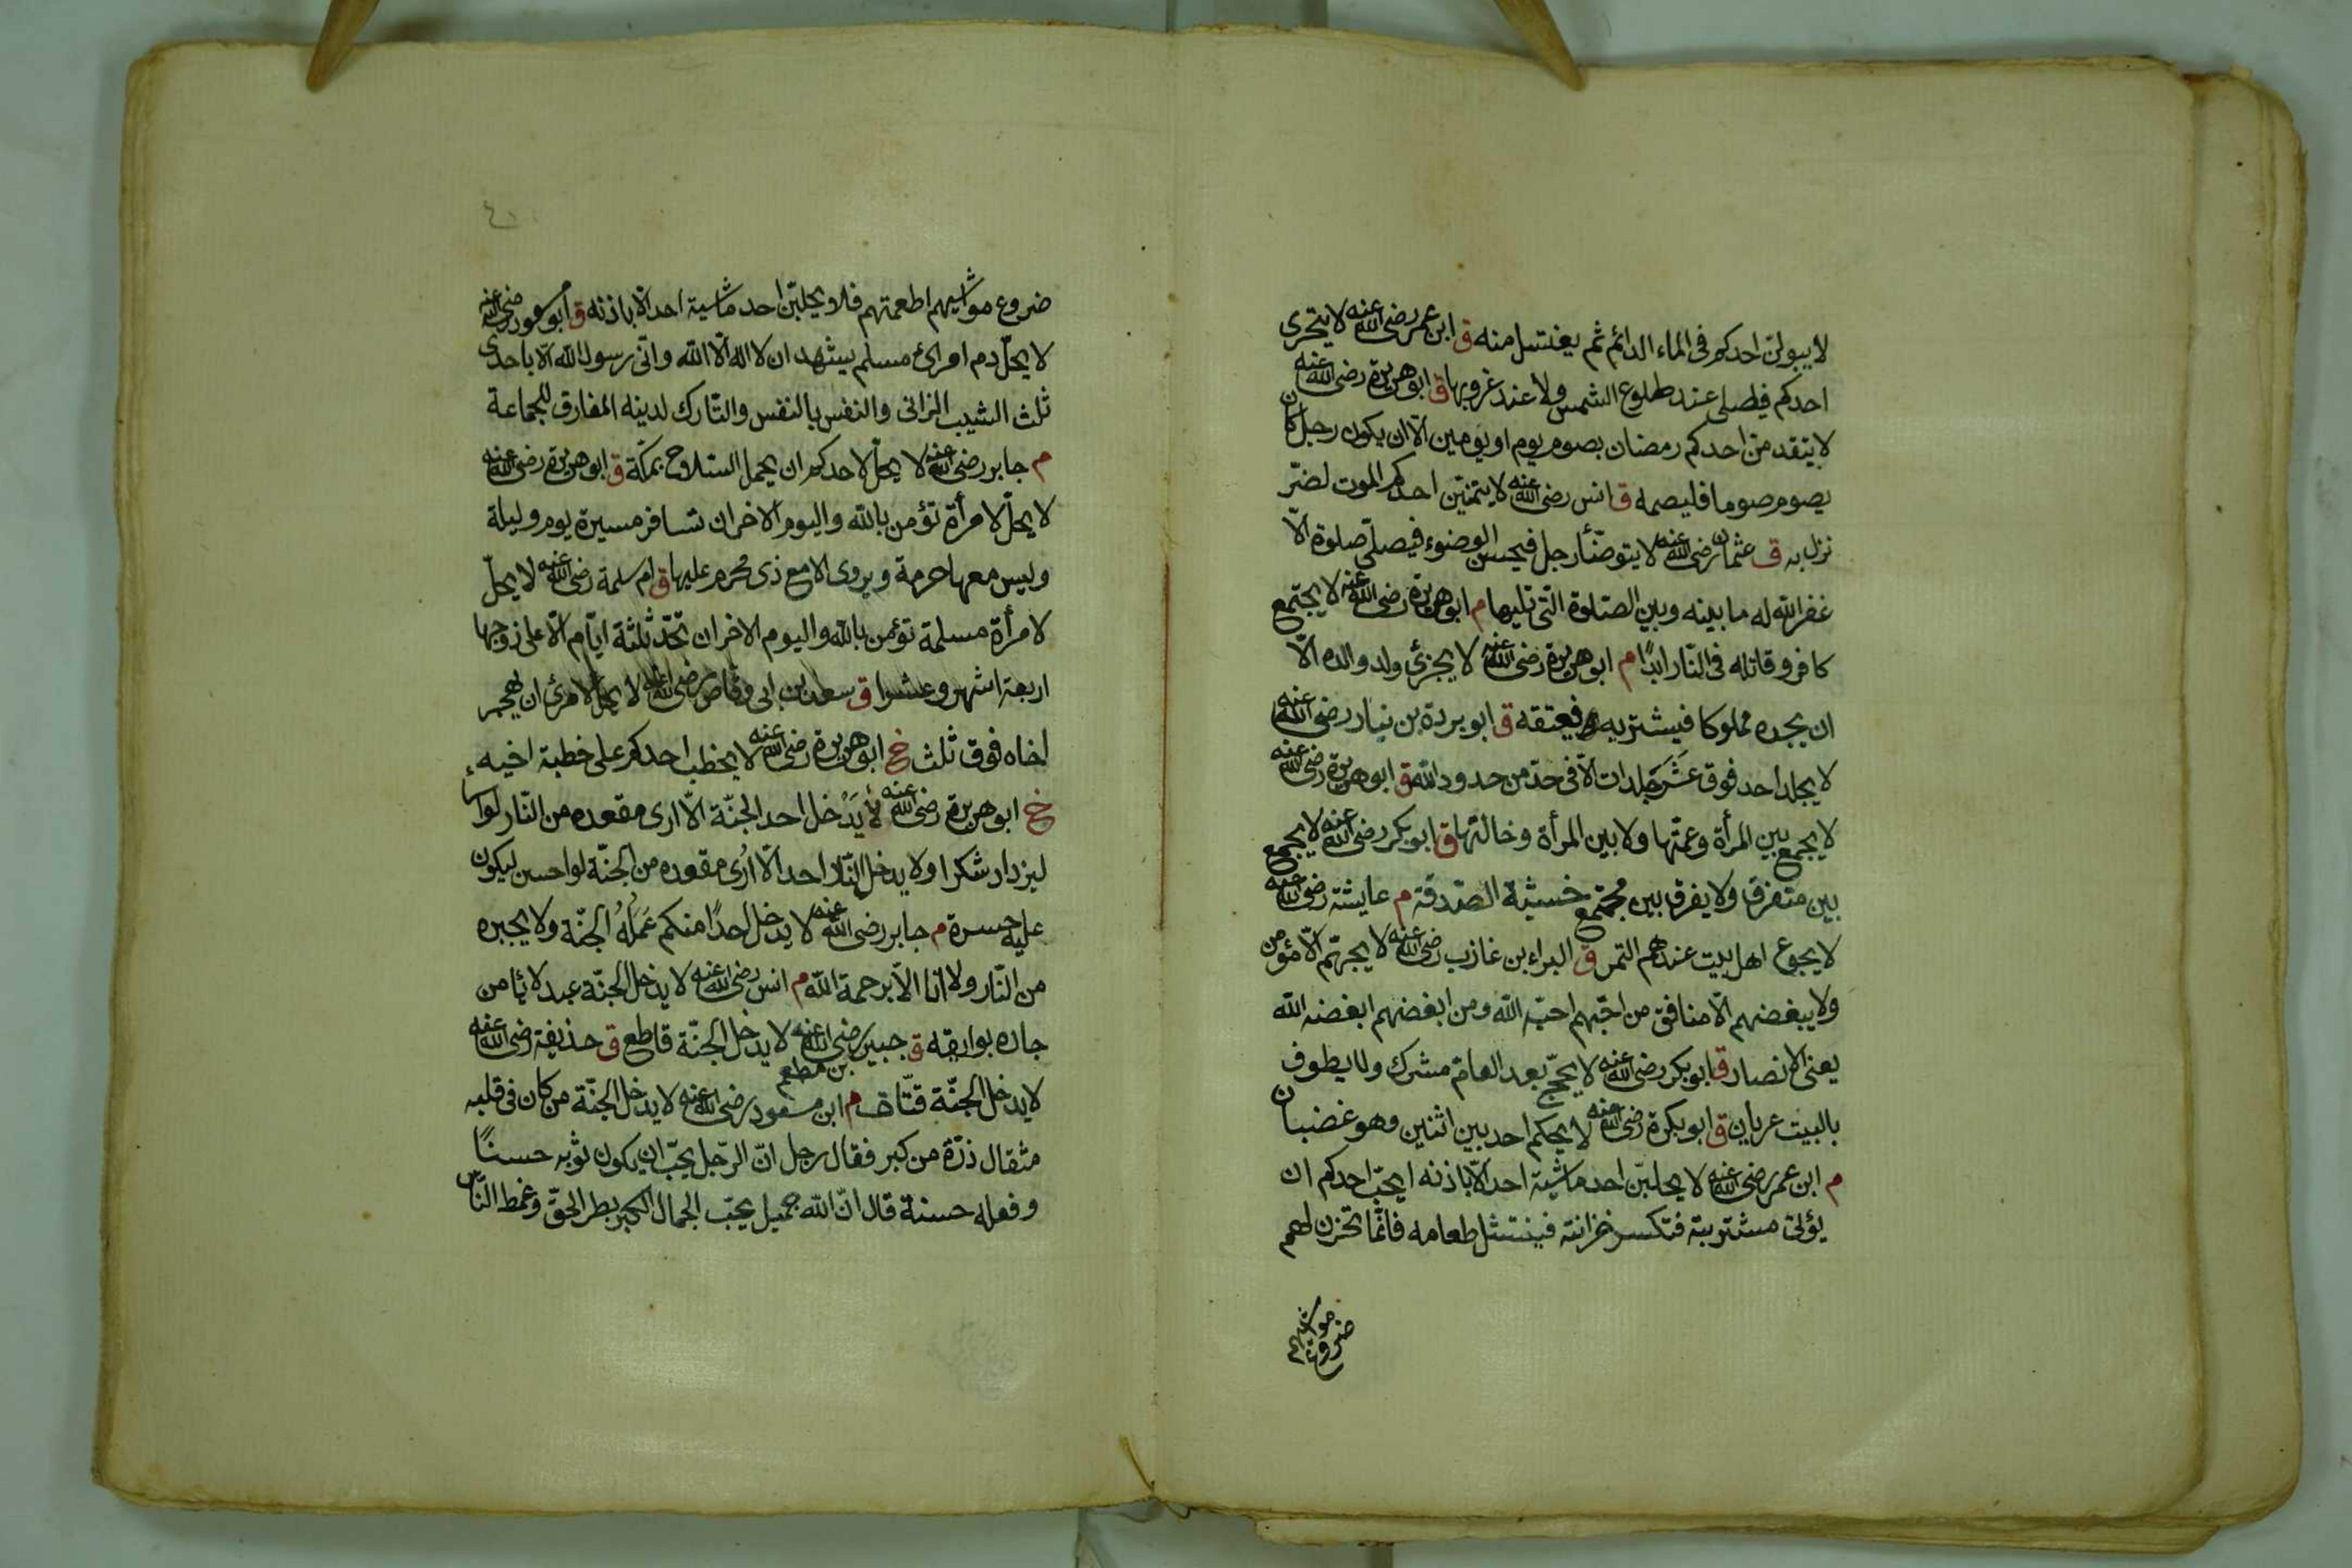 لا يبولنّ احدكم فى الماء الدائم ثم يغتسل منه ق ابن عمر رضى الله عنه لا يتحرى
احدكم فيصلى عند طلوع الشمس ولا عند غروبها ق ابو هريرة رضى الله عنه
لا يتقدمنّ احدكم رمضان بصوم يوم او يومين الّا ان يكون رجل كان
يصوم صوما فليصمه ق انس رضى الله عنه لا يتمنيّن احدكم الموت لضرّ
نزل به ق عثمان رضى الله عنه لا يتوضّأ رجل فيحسن الوضوء فيصلّى صلوة الّا
غفر الله له ما بينه وبين الصّلوة الّتى تليها م ابو هريرة رضى الله عنه لا يجتمع
كافر وقاتله فى النّار ابدًا م ابو هريرة رضى الله عنه لا يجزئ ولد والده الّا
ان يجده مملوكا فيشتريه فيعتقه ق ابو بردة بن نيار رضى الله عنه
لا يجلد احد فوق عَشَر جَلدات الّا فى حدّ من حدود الله ق ابو هريرة رضى الله عنه
لا يجمع بين المرأة وعمّتها ولا بين المرأة وخالتها ق ابو بكر رضى الله عنه لا يجمع
بين متفرق ولا يفرق بين مجتمع خشية الصّدقة م عايشة رضى الله عنه
لا يجوع اهل بيت عندهم التمر ق البراء بن غازب رضى الله عنه لا يحبّهم الّا مؤمن
ولا يبغضهم الّا منافق من احبّهم احبّه الله ومن ابغضهم ابغضه الله
يعنى الانصار ق ابو بكر رضى الله عنه لا يحجّ بعد العام مشرك ولا يطوف
بالبيت عريان ق ابو بكرة رضى الله عنه لا يحكم احد بين اثنين وهو غضبان
م ابن عمر رضى الله عنه لا يحلبنّ احد ماشية احد الّا باذنه ايحبّ احدكم ان
يؤتى مشتربته فتكسر خزانته فينتثل طعامه فانّما تخزن لهم
ضروع مواشيهم
ضروع مواشيهم اطعمتهم فلا يحلبنّ احد ماشية احد الّا باذنه ق ابو مسعود رضى الله عنه
لا يحلّ دم امرئ مسلم يشهد ان لا اله الّا الله وانّى رسول الله الّا باحدى
ثلث الشيب الزانى والنفس بالنفس والتّارك لدينه المفارق للجماعة
م جابر رضى الله عنه لا يحلّ لاحدكم ان يحمل السّلاح بمكّة ق ابو هريرة رضى الله عنه
لا يحلّ لامرأة تؤمن بالله واليوم الاخر ان تسافر مسيرة يوم وليلة
وليس معها حرمة ويروى الا مع ذى محرم عليها ق ام سلمة رضى الله عنه لا يحلّ
لامرأة مسلمة تؤمن بالله واليوم الاخر ان تحدّ ثلثة ايّام الّا على زوجها
اربعة اشهر وعشرا ق سعد بن ابى وقاص رضى الله عنه لا يحلّ لامرئ ان يهجر
اخاه فوق ثلث خ ابو هريرة رضى الله عنه لا يخطب احدكم على خطبة اخيه
خ ابو هريرة رضى الله عنه لا يَدْخل احد الجنّة الّا ارى مقعده من النّار لو اساء
ليزداد شكرا ولا يدخل النّار احد الّا اُرى مقعده من الجنّة لو احسن ليكون
عليه حسرة م جابر رضى الله عنه لا يدخل احدًا منكم عَمَلُهُ الجنّة ولا يجيره
من النّار ولا انا الّا برحمة الله م انس رضى الله عنه لا يدخل الجنّة عبد لا يأمن
جاره بوايقه ق جبير بن مطعم رضى الله عنه لا يدخل الجنّة قاطع ق حذيفة رضى الله عنه
لا يدخل الجنّة قتّات م ابن مسعود رضى الله عنه لا يدخل الجنّة من كان فى قلبه
مثقال ذرّة من كبر فقال رجل انّ الرّجل يحبّ ان يكون ثوبه حسنًا
وفعله حسنة قال انّ الله جميل يحبّ الجمال الكبر بطر الحقّ وغمط النّاس